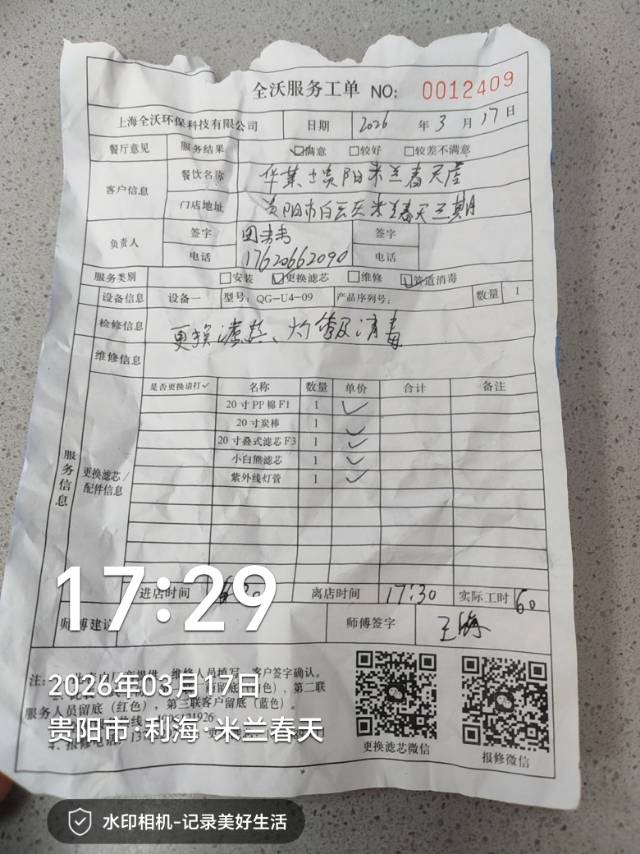 全沃服务工单 NO: 0012409
上海全沃环保科技有限公司 日期 2026 年 3 月 17 日
餐厅意见 服务结果 ☑满意 □较好 □较差不满意
客户信息 餐饮名称 华莱士贵阳米兰春天店
门店地址 贵阳市白云区米兰春天三期
负责人 签字 签字
电话 17620662090 电话
服务类别 □安装 ☑更换滤芯 □维修 ☑管道消毒
设备信息 设备一 型号: QG-U4-09 产品序列号: 数量 1
检修信息
维修信息
更换滤芯、灯管及消毒
服务信息 更换滤芯/配件信息
是否更换请打✓ 名称 数量 单价 合计 备注
20寸PP棉F1 1 ✓
20寸炭棒 1 ✓
20寸叠式滤芯F3 1 ✓
小白熊滤芯 1 ✓
紫外线灯管 1 ✓
进店时间 离店时间 17:30 实际工时 60
师傅建议 师傅签字
17:29
注:
维修人员填写, 客户签字确认。
第二联
服务人员留底(红色), 第三联客户留底(蓝色)。
2026年03月17日
贵阳市·利海·米兰春天
更换滤芯微信 报修微信
水印相机-记录美好生活